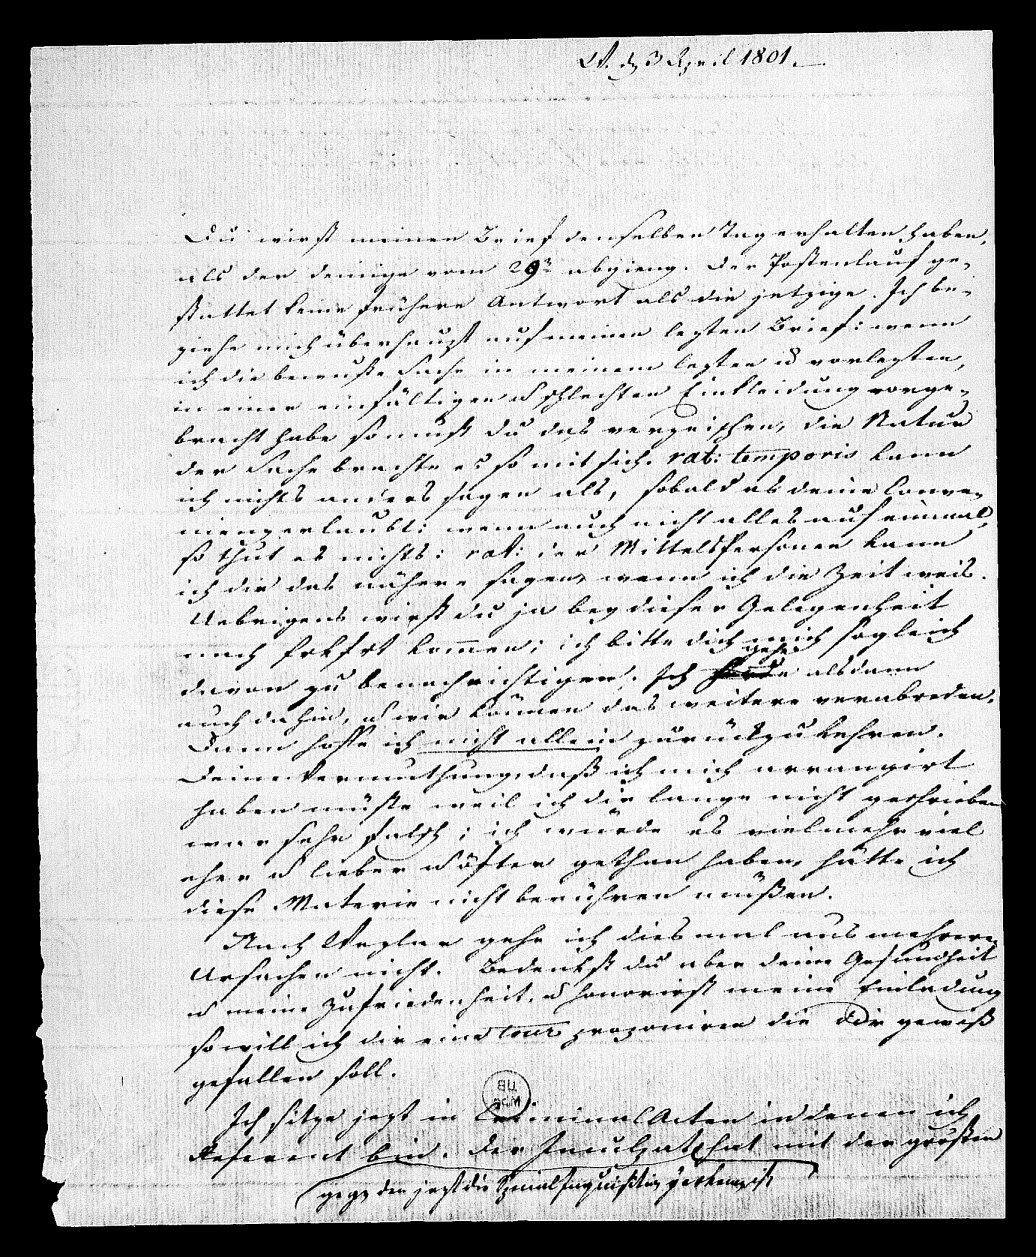 W. d. 3 April 1801.
Du wirst meinen Brief denselben Tag erhalten haben,
als der deinige vom 29n abgieng. Der Postenlauf ge-
stattet keine frühere Antwort als die jetzige. Ich be-
ziehe mich überhaupt auf meinen lezten Brief: wenn
ich die bewußte Sache in meinem lezten u vorlezten,
in einer einfältigen u schlechten Einkleidung vorge-
bracht habe so must du das verzeihen, die Natur
der Sache brachte es so mit sich. rat: temporis kann
ich nichts anders sagen als, sobald es deine Conve-
nienz erlaubt: wenn auch nicht alles auf einmal,
so thut es nichts: rat: der Mittelspersonen kann
ich dir das nähere sagen, wenn ich die Zeit weis.
Uebrigens wirst du ja bey dieser Gelegenheit
nach Frkfrt kommen; ich bitte dich mich sogleich
davon zu benachrichtigen. Ich gehe alsdann
auch dahin, u wir können das weitere verabreden.
Dann hoffe ich nicht allein zurückzukehren.
Deine Vermuthung, daß ich mich arrangirt
haben müste weil ich dir lange nicht geschrieben
war sehr falsch; ich würde es vielmehr viel
eher u lieber u öfter gethan haben, hätte ich
diese Materie nicht berühren müßen.
Nach Wezlar gehe ich dies mal aus mehreren
Ursachen nicht. Bedenkst du aber deine Gesundheit
u meine Zufriedenheit, u honorirst meine Einladung
so will ich dir eine tour proponiren die Dir gewiß
gefallen soll.
BU
Ich sitze jezt in Criminal Acten in denen ich
Referent bin. Der Inculpat hat mit der grösten
gegen den jezt die Specialinquisition erkannt ist